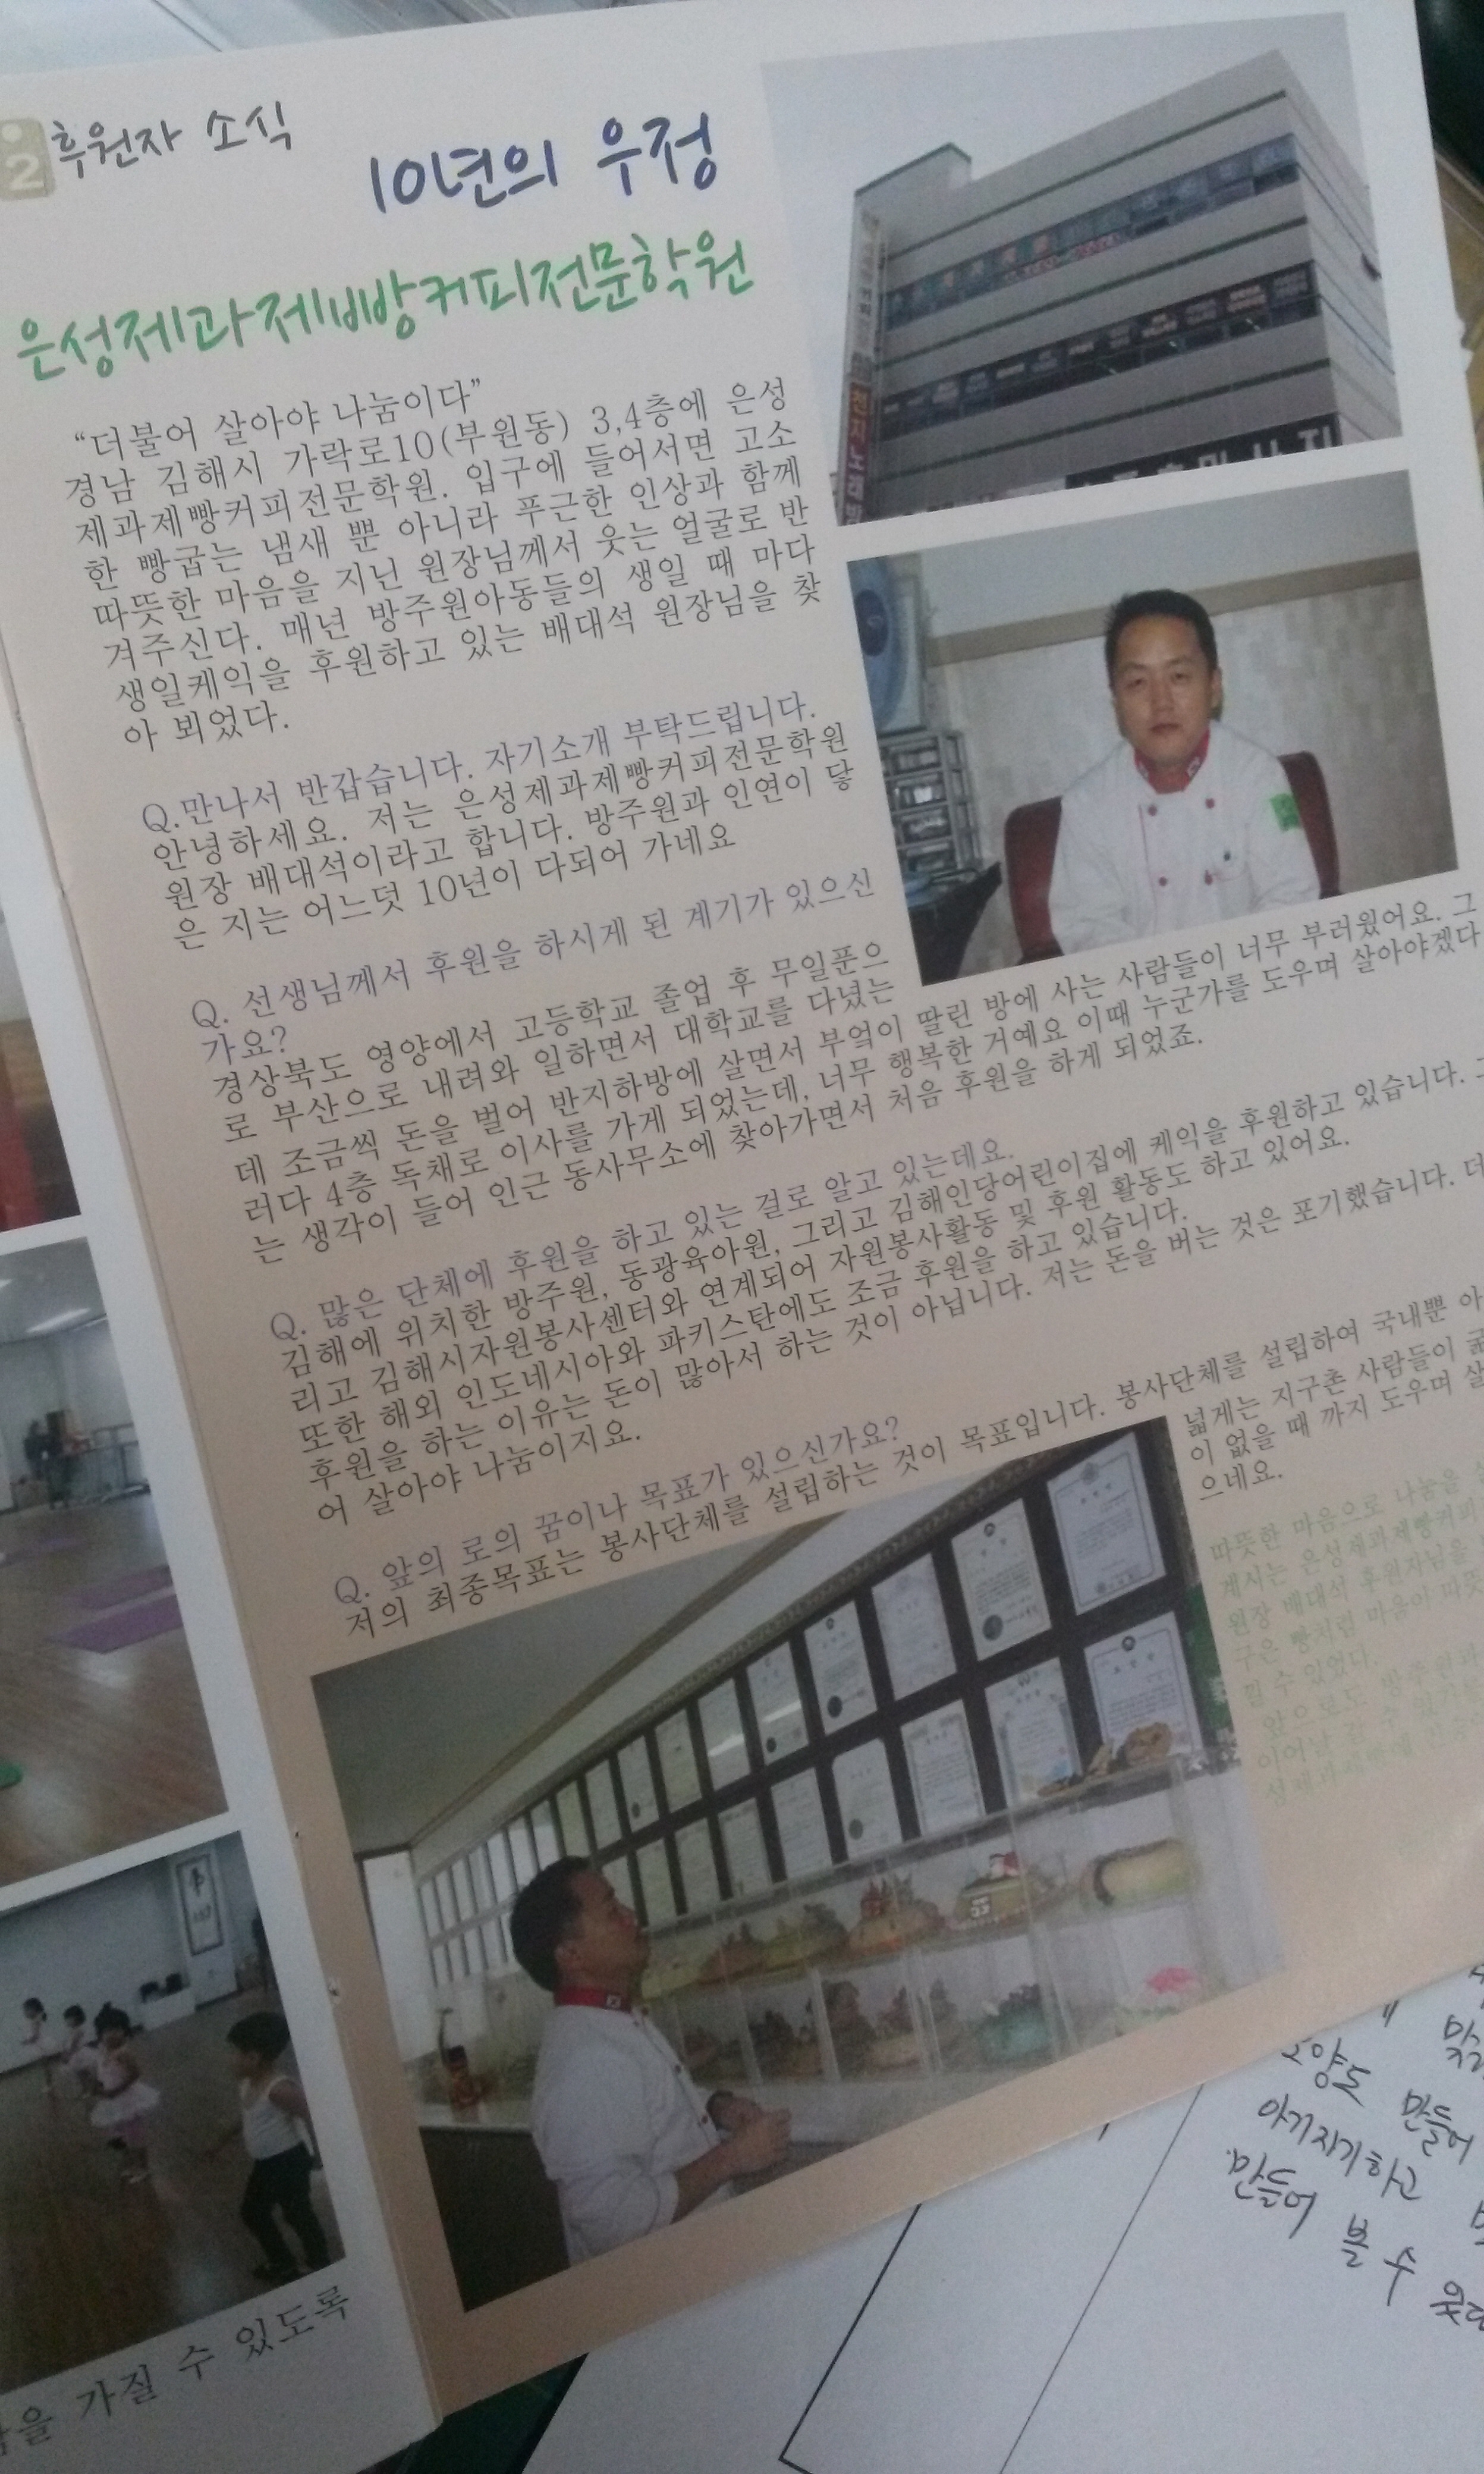 2
후원자 소식
10년의 우정
은성제과제빵커피전문학원
“더불어 살아야 나눔이다”
경남 김해시 가락로10(부원동) 3,4층에 은성
제과제빵커피전문학원. 입구에 들어서면 고소
한 빵굽는 냄새 뿐 아니라 푸근한 인상과 함께
따뜻한 마음을 지닌 원장님께서 웃는 얼굴로 반
겨주신다. 매년 방주원아동들의 생일 때 마다
생일케익을 후원하고 있는 배대석 원장님을 찾
아 뵈었다.
Q.만나서 반갑습니다. 자기소개 부탁드립니다.
안녕하세요. 저는 은성제과제빵커피전문학원
원장 배대석이라고 합니다. 방주원과 인연이 닿
은 지는 어느덧 10년이 다되어 가네요
Q. 선생님께서 후원을 하시게 된 계기가 있으신
가요?
경상북도 영양에서 고등학교 졸업 후 무일푼으
로 부산으로 내려와 일하면서 대학교를 다녔는
데 조금씩 돈을 벌어 반지하방에 살면서 부엌이 딸린 방에 사는 사람들이 너무 부러웠어요. 그
러다 4층 독채로 이사를 가게 되었는데, 너무 행복한 거예요 이때 누군가를 도우며 살아야겠다
는 생각이 들어 인근 동사무소에 찾아가면서 처음 후원을 하게 되었죠.
Q. 많은 단체에 후원을 하고 있는 걸로 알고 있는데요.
김해에 위치한 방주원, 동광육아원, 그리고 김해인당어린이집에 케익을 후원하고 있습니다. 그
리고 김해시자원봉사센터와 연계되어 자원봉사활동 및 후원 활동도 하고 있어요.
또한 해외 인도네시아와 파키스탄에도 조금 후원을 하고 있습니다.
후원을 하는 이유는 돈이 많아서 하는 것이 아닙니다. 저는 돈을 버는 것은 포기했습니다. 더
어 살아야 나눔이지요.
Q. 앞의 로의 꿈이나 목표가 있으신가요?
저의 최종목표는 봉사단체를 설립하는 것이 목표입니다. 봉사단체를 설립하여 국내뿐 아
넓게는 지구촌 사람들이 굶
이 없을 때 까지 도우며 살
으네요.
따뜻한 마음으로 나눔을
계시는 은성제과제빵커피
원장 배대석 후원자님을
구은 빵처럼 마음이 따뜻
낄 수 있었다.
앞으로도 방주원과
이어날 갈 수 있기를
천지노래방
을 가질 수 있도록
모양도 만들어
아기자기하고
만들어 볼 수